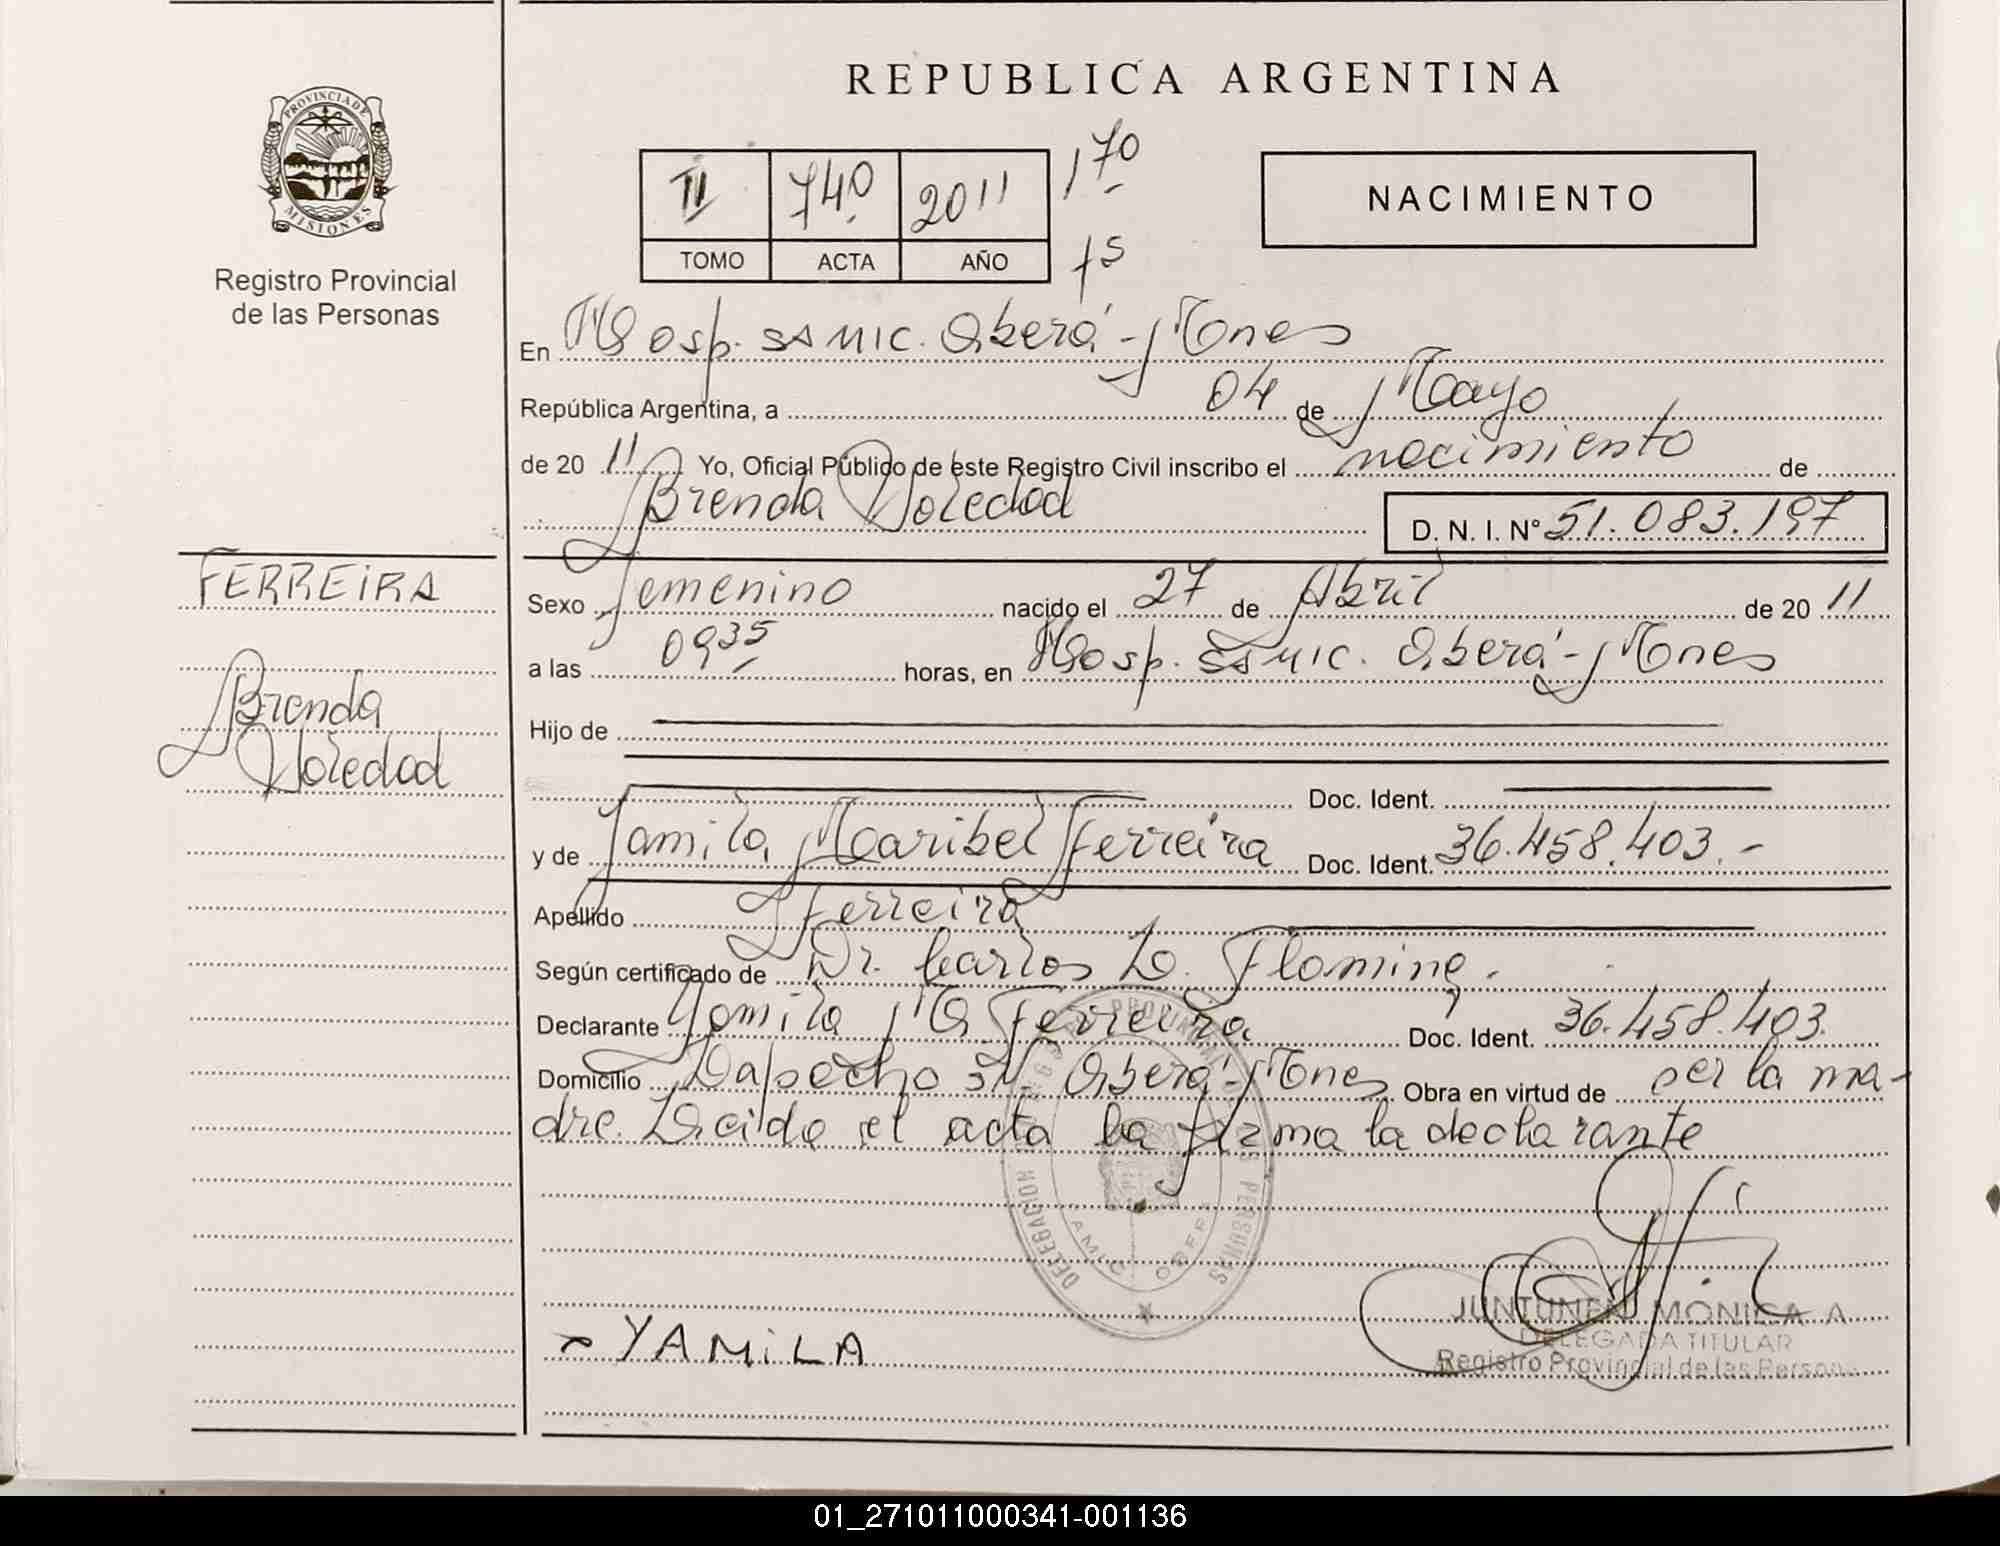 REPUBLICA ARGENTINA
PROVINCIA DE
MISIONES
Registro Provincial
de las Personas
II 740 2011 170
TOMO ACTA AÑO 15
NACIMIENTO
En Hosp. SAMIC. Oberá - Mones
República Argentina, a 04 de Mayo
de 20 11 Yo, Oficial Público de este Registro Civil inscribo el nacimiento de
Brenda Soledad D. N. I. Nº 51.083.197
FERREIRA
Brenda
Soledad
Sexo femenino nacido el 27 de Abril de 20 11
a las 0935 horas, en Hosp. SAMIC. Oberá - Mones
Hijo de
Doc. Ident.
y de Yamila Maribel Ferreira Doc. Ident. 36.458.403.-
Apellido Ferreira
Según certificado de Dr. Carlos D. Fleming.
Declarante Yamila M. Ferreira Doc. Ident. 36.458.403.
Domicilio Oberá - Mones Obra en virtud de ser la ma-
dre. Leída el acta la firma la declarante
DELEGACION PERSONAS
YAMiLA
JUNTUNEN MONICA A
DELEGADA TITULAR
Registro Provincial de las Personas
01_271011000341-001136